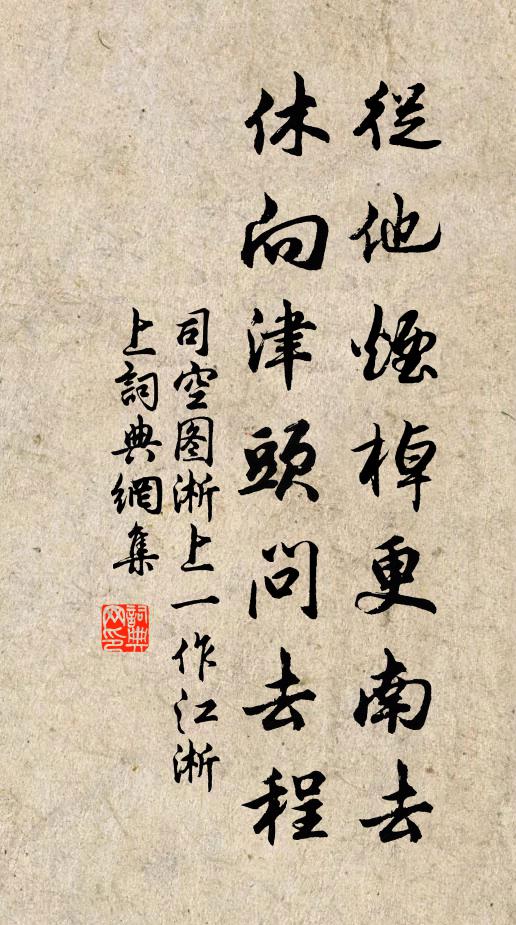 從他煙棹更南去
休向津頭問去程
司空图淅上一作江淅
上詞典網集
詞典
网印